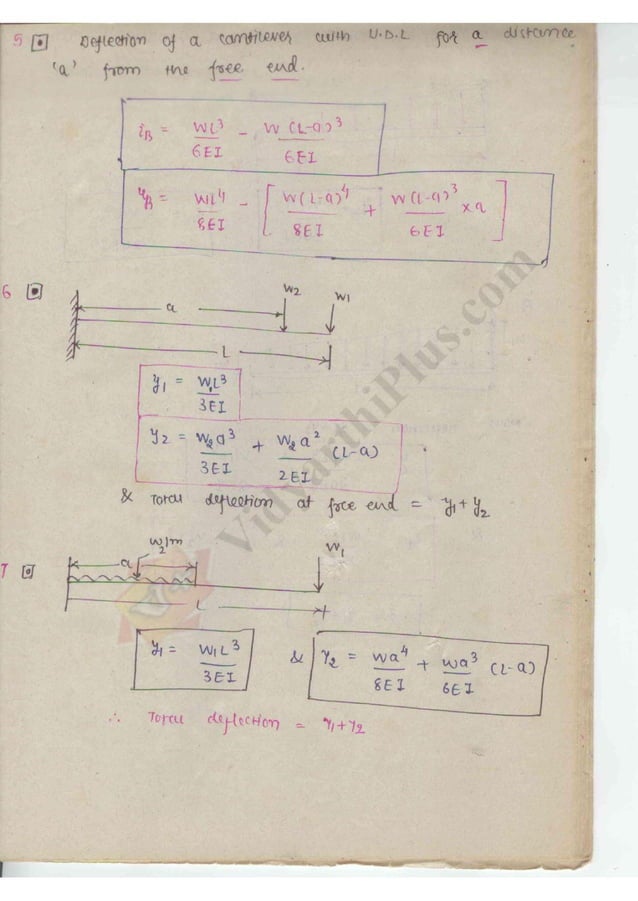 5 Deflection of a cantilever with U.D.L for a distance
'a' from the free end.
iB = WL³/6EI - W(L-a)³/6EI
yB = WL⁴/8EI - [W(L-a)⁴/8EI + W(L-a)³/6EI × a]
6
W2 W1
a
L
y1 = W1L³/3EI
y2 = W2a³/3EI + W2a²/2EI (L-a)
& Total deflection at free end = y1 + y2
7
W2/m W1
a
L
y1 = W1L³/3EI & y2 = Wa⁴/8EI + Wa³/6EI (L-a)
∴ Total deflection = y1 + y2
VidyarthiPlus.com